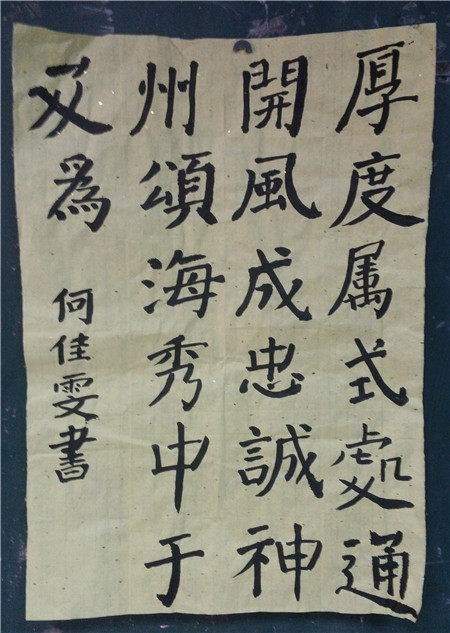 厚度属式處通
開風成忠誠神
州頌海秀中于
及為
何佳雯書